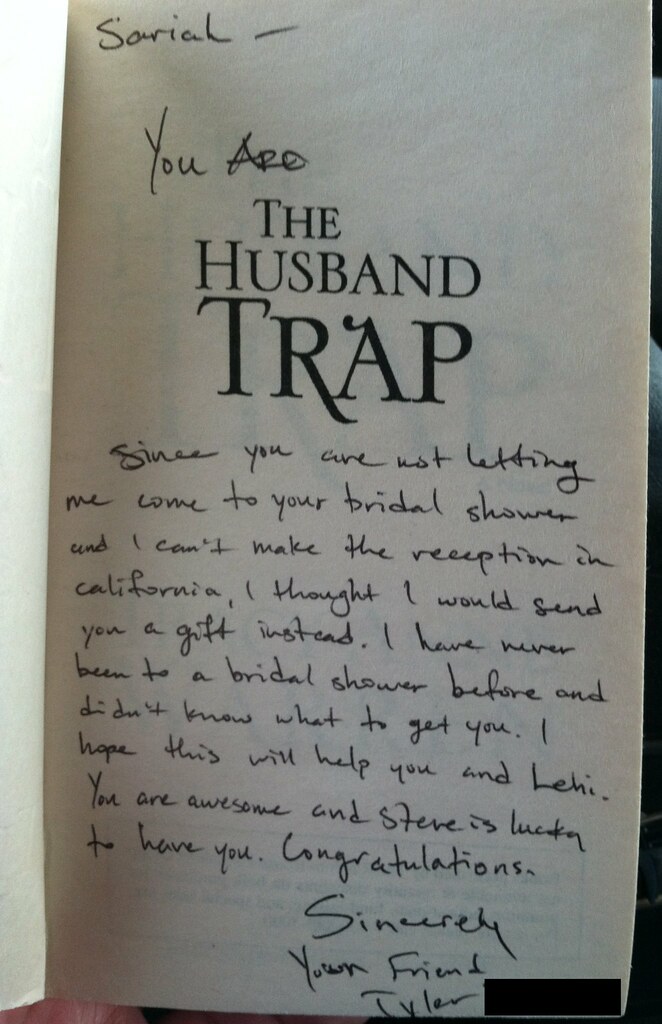 Sariah —
You Are
THE
HUSBAND
TRAP
Since you are not letting
me come to your bridal shower
and I can't make the reception in
california, I thought I would send
you a gift instead. I have never
been to a bridal shower before and
didn't know what to get you. I
hope this will help you and Lehi.
You are awesome and Steve is lucky
to have you. Congratulations.
Sincerely
Your Friend,
Tyler